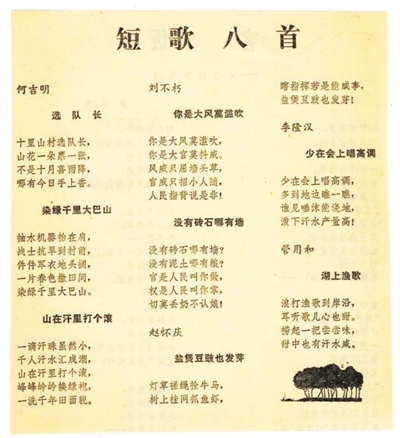 短歌八首
何吉明
选队长
十里山村选队长,
山花一朵票一张,
不是十月喜雨降,
哪有今日乎上香。
染绿千里大巴山
抽水机器抬在肩,
战士抗旱到村前,
件件军衣地头搁,
一片春色撒田间,
染绿千里大巴山。
山在汗里打个滚
一滴汗珠虽然小,
千人汗水汇成潮,
山在汗里打个滚,
峰峰岭岭换绿袍,
一洗千年旧面貌。
刘不朽
你是大风莫滥吹
你是大风莫滥吹,
你是大官莫抖威。
风威只屈墙头草,
官威只招小人随,
人民指背说是非!
没有砖石哪有墙
没有砖石哪有墙?
没有泥土哪有粮?
官是人民叫你做,
权是人民叫你掌,
切莫丢奶不认娘!
赵怀庆
盐煲豆豉也发芽
灯草搓绳拴牛马,
树上挂网抓鱼虾,
瞎指挥若是能成事,
盐煲豆豉也发芽!
李隆汉
少在会上唱高调
少在会上唱高调,
多到地边瞧一瞧,
谁见唾沫能浇地,
泼下汗水产量高!
管用和
湖上渔歌
浪打渔歌到岸沿,
耳听歌儿心也甜。
捞起一把尝尝味,
甜中也有汗水咸。